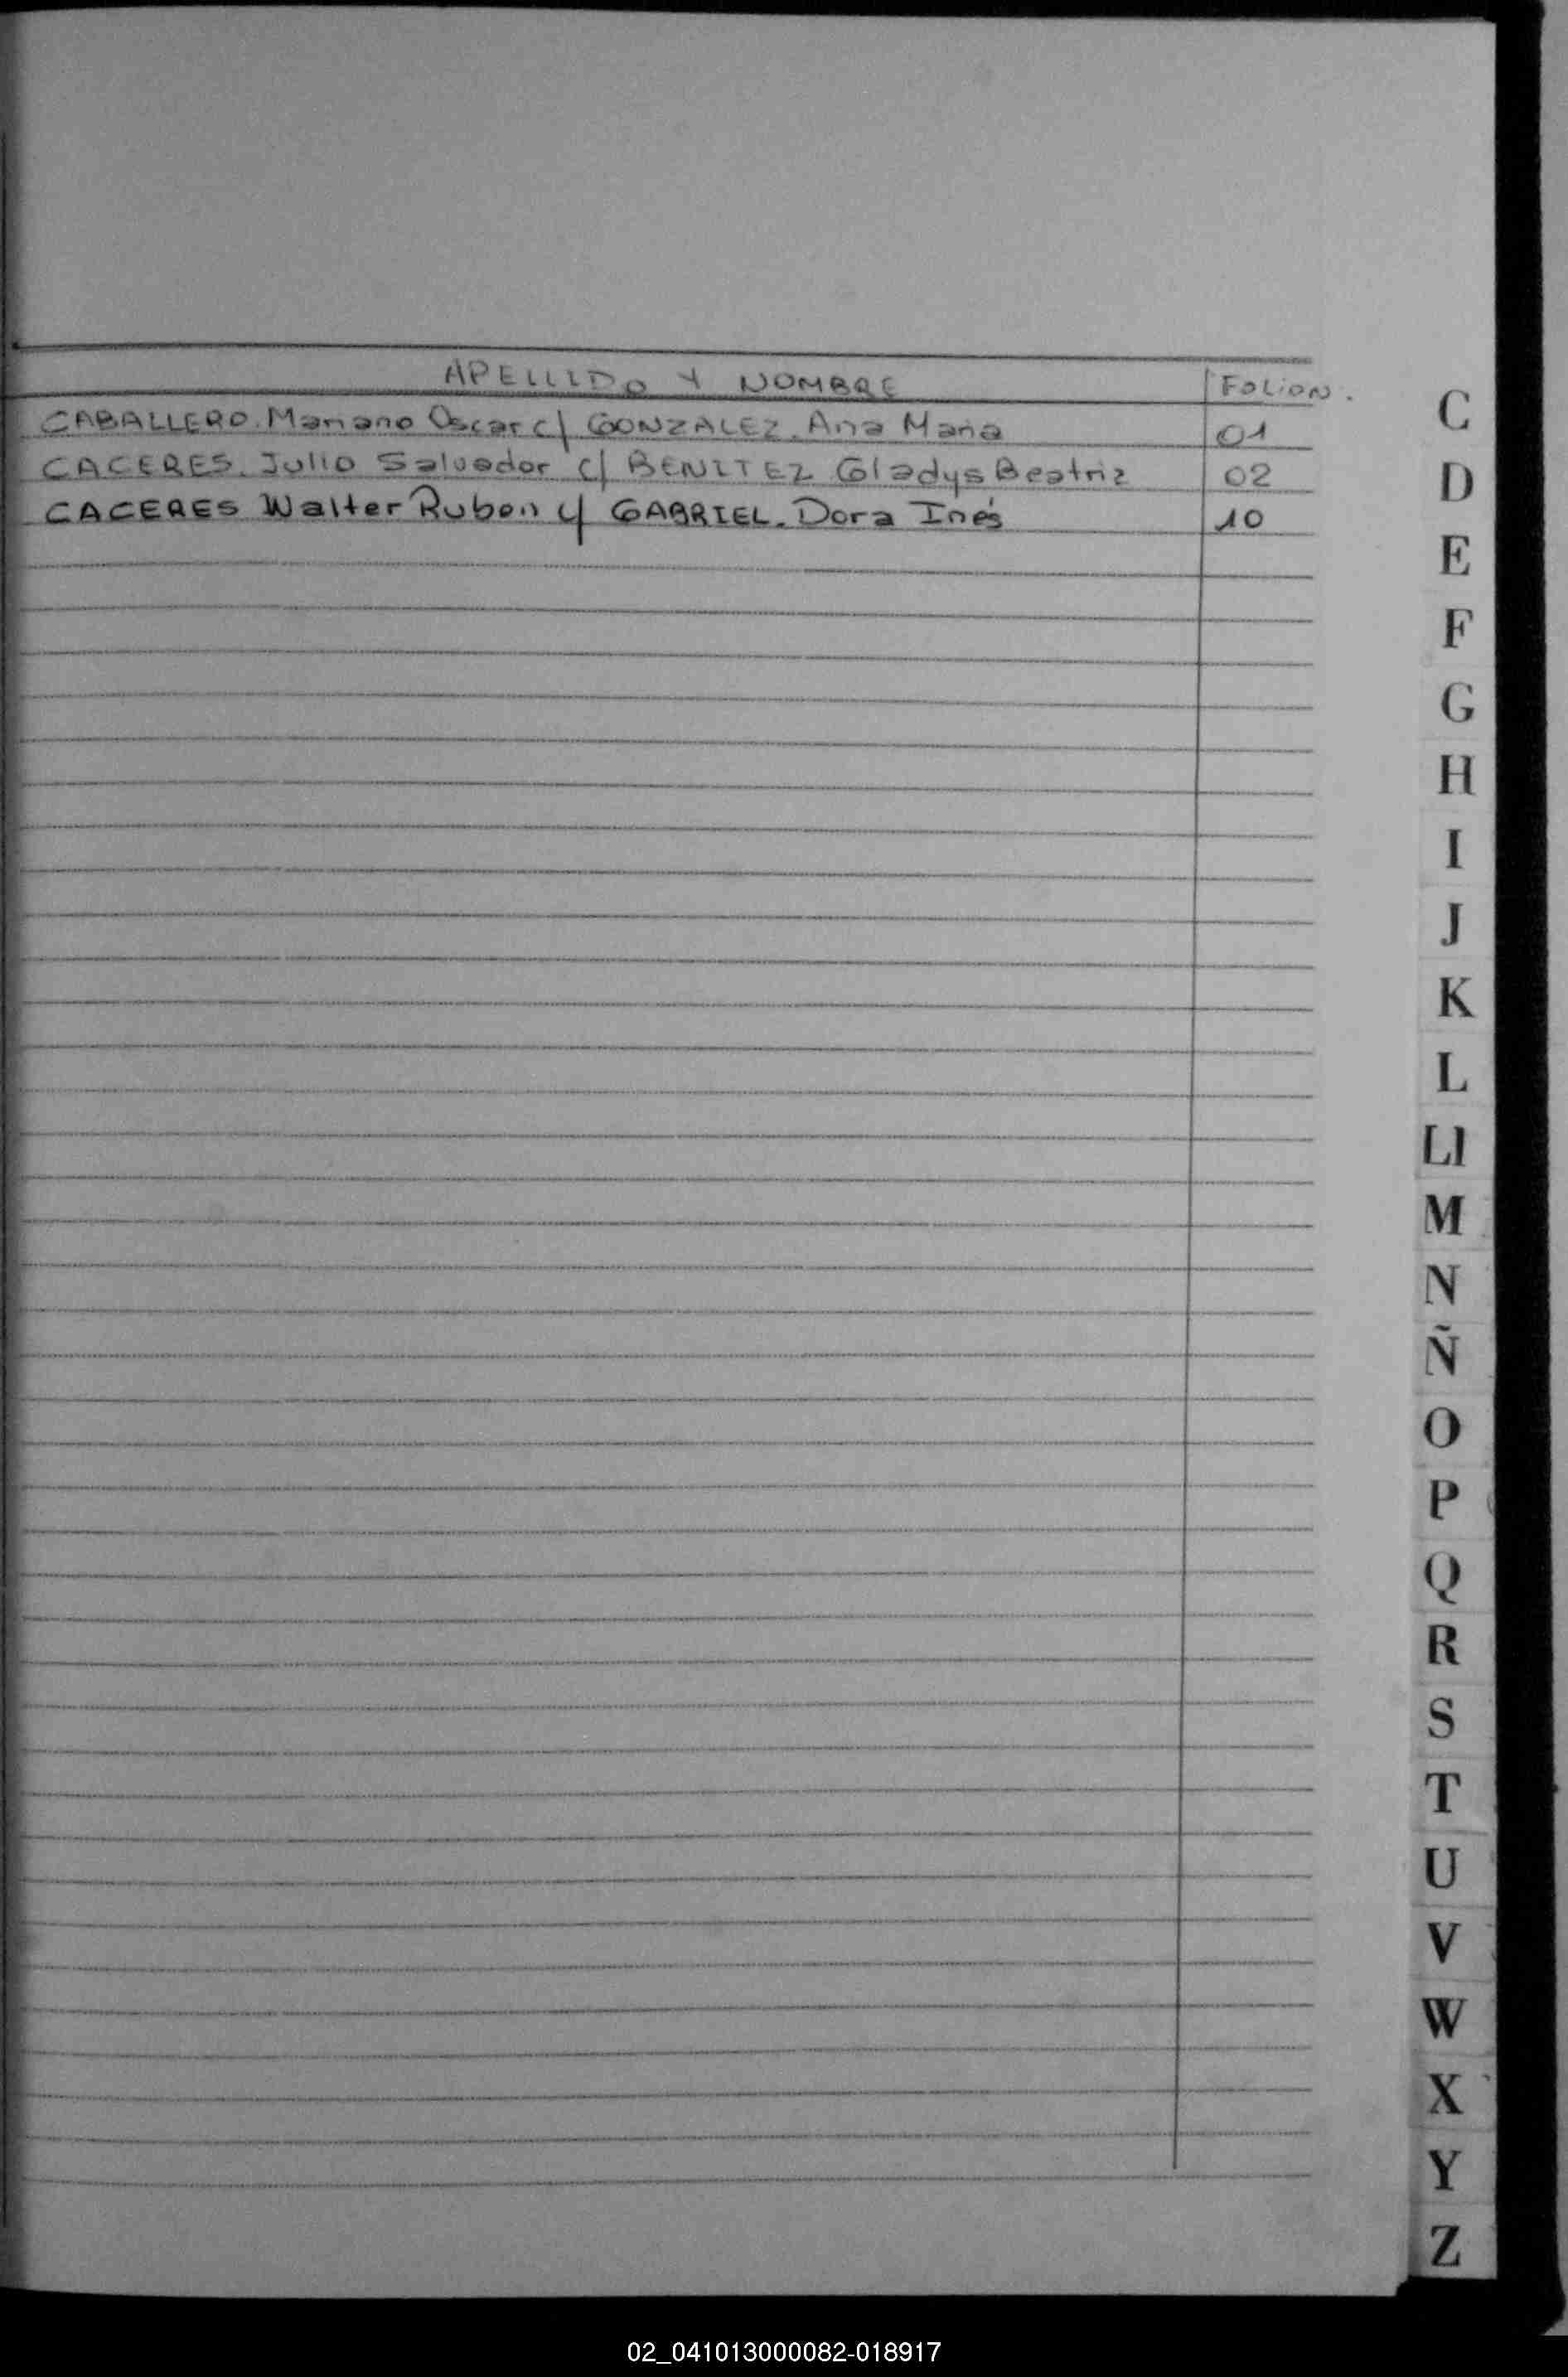 APELLIDO Y NOMBRE FOLION.
CABALLERO. Mariano Oscar c/ GONZALEZ. Ana Maria 01
CACERES. Julio Salvador c/ BENITEZ Gladys Beatriz 02
CACERES Walter Ruben c/ GABRIEL. Dora Inés 10
C
D
E
F
G
H
I
J
K
L
Ll
M
N
Ñ
O
P
Q
R
S
T
U
V
W
X
Y
Z
02_041013000082-018917